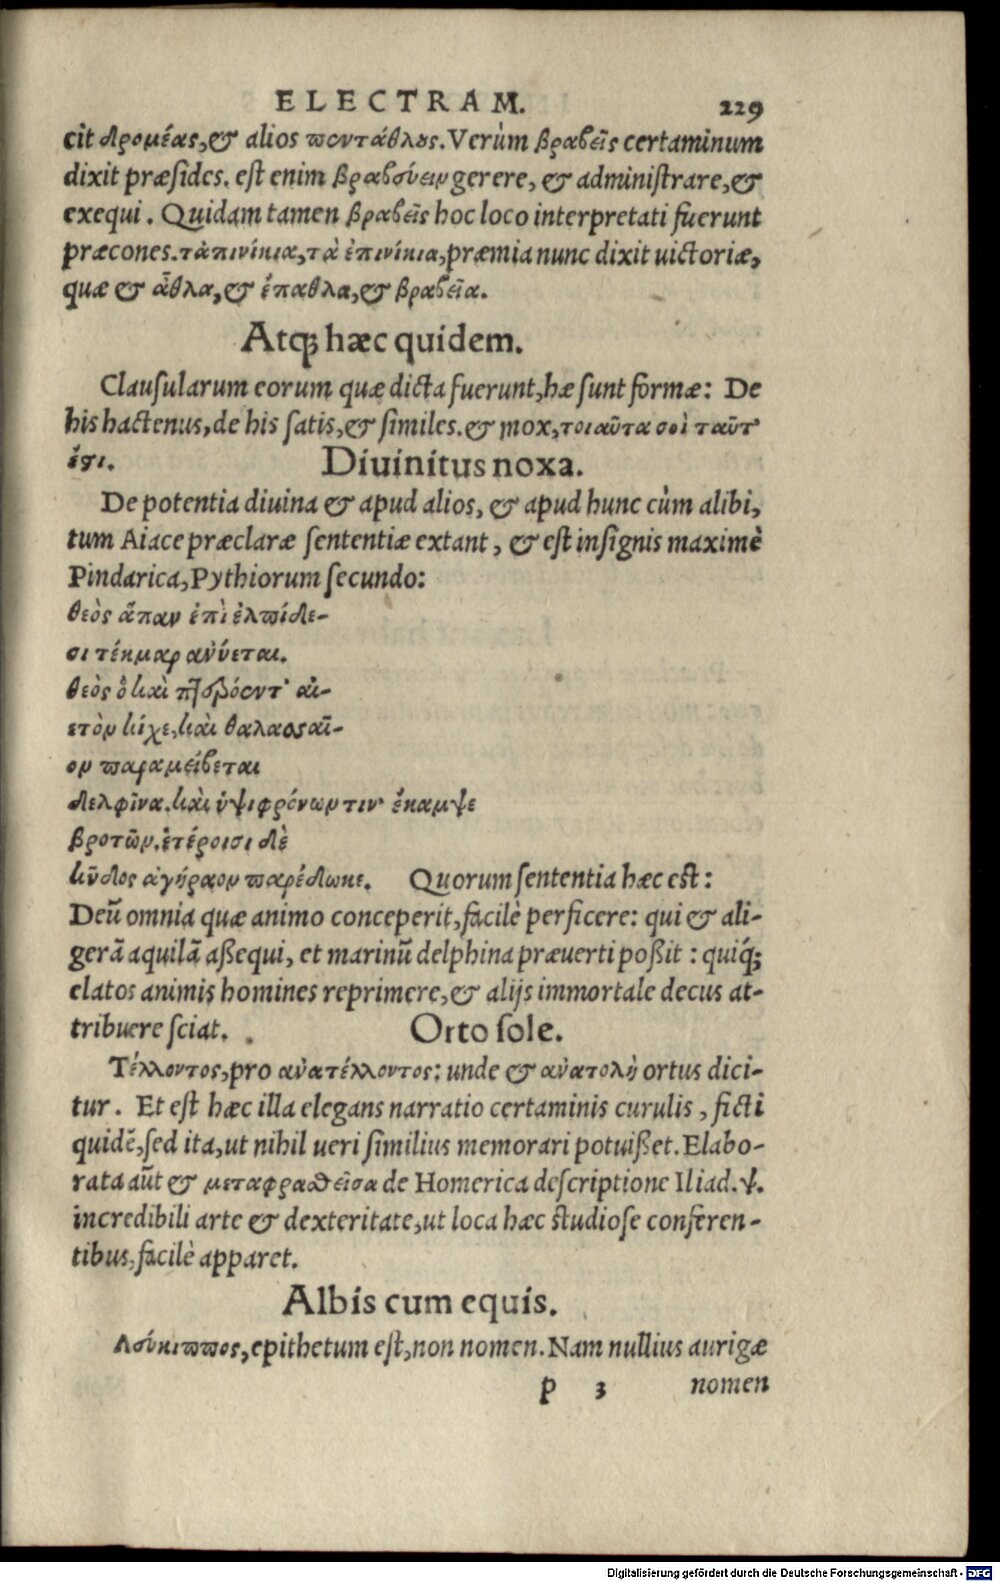 ELECTRAM. 229
cit δρομέας, & alios πεντάθλους. Verùm βραβεῖς certaminum
dixit præsides. est enim βραβεύειν gerere, & administrare, &
exequi. Quidam tamen βραβεῖς hoc loco interpretati fuerunt
præcones. τἀπινίκια, τὰ ἐπινίκια, præmia nunc dixit uictoriæ,
quæ & ἆθλα, & ἔπαθλα, & βραβεῖα.
Atq; hæc quidem.
Clausularum eorum quæ dicta fuerunt, hæ sunt formæ: De
his hactenus, de his satis, & similes. & mox, τοιαῦτα σοὶ ταῦτ᾽
ἐστι. Diuinitus noxa.
De potentia diuina & apud alios, & apud hunc cùm alibi,
tum Aiace præclaræ sententiæ extant, & est insignis maximè
Pindarica, Pythiorum secundo:
θεὸς ἅπαν ἐπὶ ἐλπίδε-
σι τέκμαρ ἀνύεται.
θεὸς ὃ καὶ πτερόεντ᾽ αἰ-
ετὸν κίχε, καὶ θαλασσαῖ-
ον παραμείβεται
δελφῖνα. καὶ ὑψιφρόνων τιν᾽ ἔκαμψε
βροτῶν. ἑτέροισι δὲ
κῦδος ἀγήραον παρέδωκε. Quorum sententia hæc est:
Deũ omnia quæ animo conceperit, facilè perficere: qui & ali-
gerã aquilã aßequi, et marinũ delphina præuerti poßit: quiq́;
elatos animis homines reprimere, & alijs immortale decus at-
tribuere sciat. Orto sole.
Τέλλοντος, pro ἀνατέλλοντος: unde & ἀνατολὴ ortus dici-
tur. Et est hæc illa elegans narratio certaminis curulis, ficti
quidẽ, sed ita, ut nihil ueri similius memorari potuißet. Elabo-
rata aũt & μεταφρασθεῖσα de Homerica descriptione Iliad. ψ.
incredibili arte & dexteritate, ut loca hæc studiose conferen-
tibus, facilè apparet.
Albis cum equis.
Λεύκιππος, epithetum est, non nomen. Nam nullius aurigæ
p 3 nomen
Digitalisierung gefördert durch die Deutsche Forschungsgemeinschaft - DFG